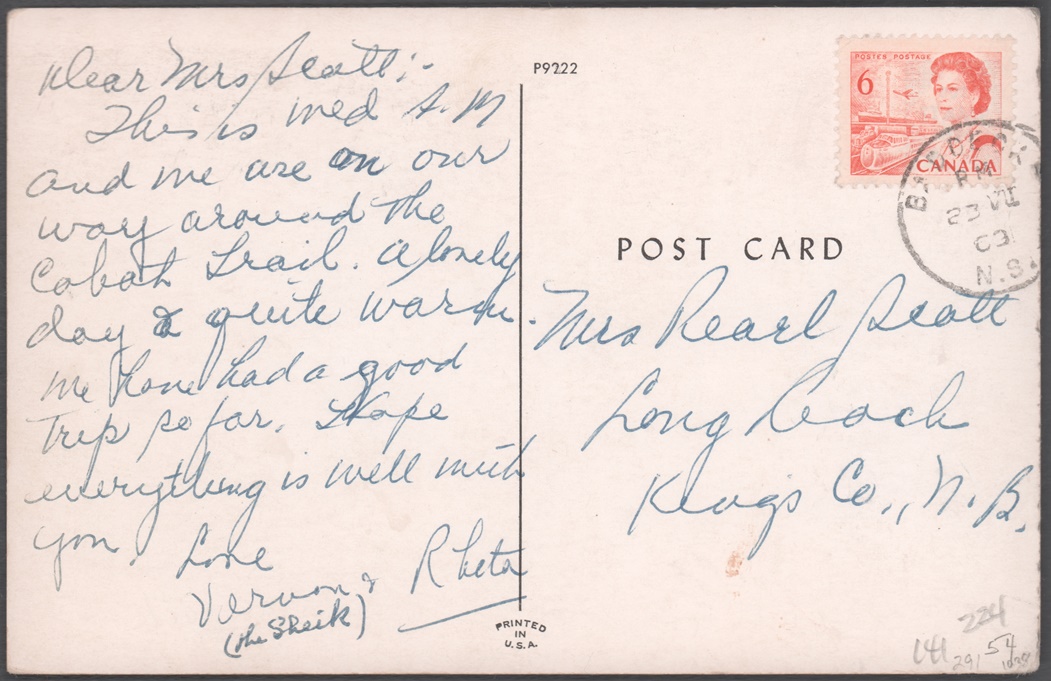 Dear Mrs Scott:-
This is wed A.M
and we are on our
way around the
Cabot Trail. A lovely
day & quite warm.
We have had a good
Trip so far. Hope
everything is well with
you.
Love
Vernon & Rheta
(the Sheik)
P9222
POSTES POSTAGE
6
CANADA
PM
23 VI
N.S.
POST CARD
Mrs Pearl Scott
Long Beach
Kings Co., N.B.
PRINTED
IN
U.S.A.
224
141
291
54